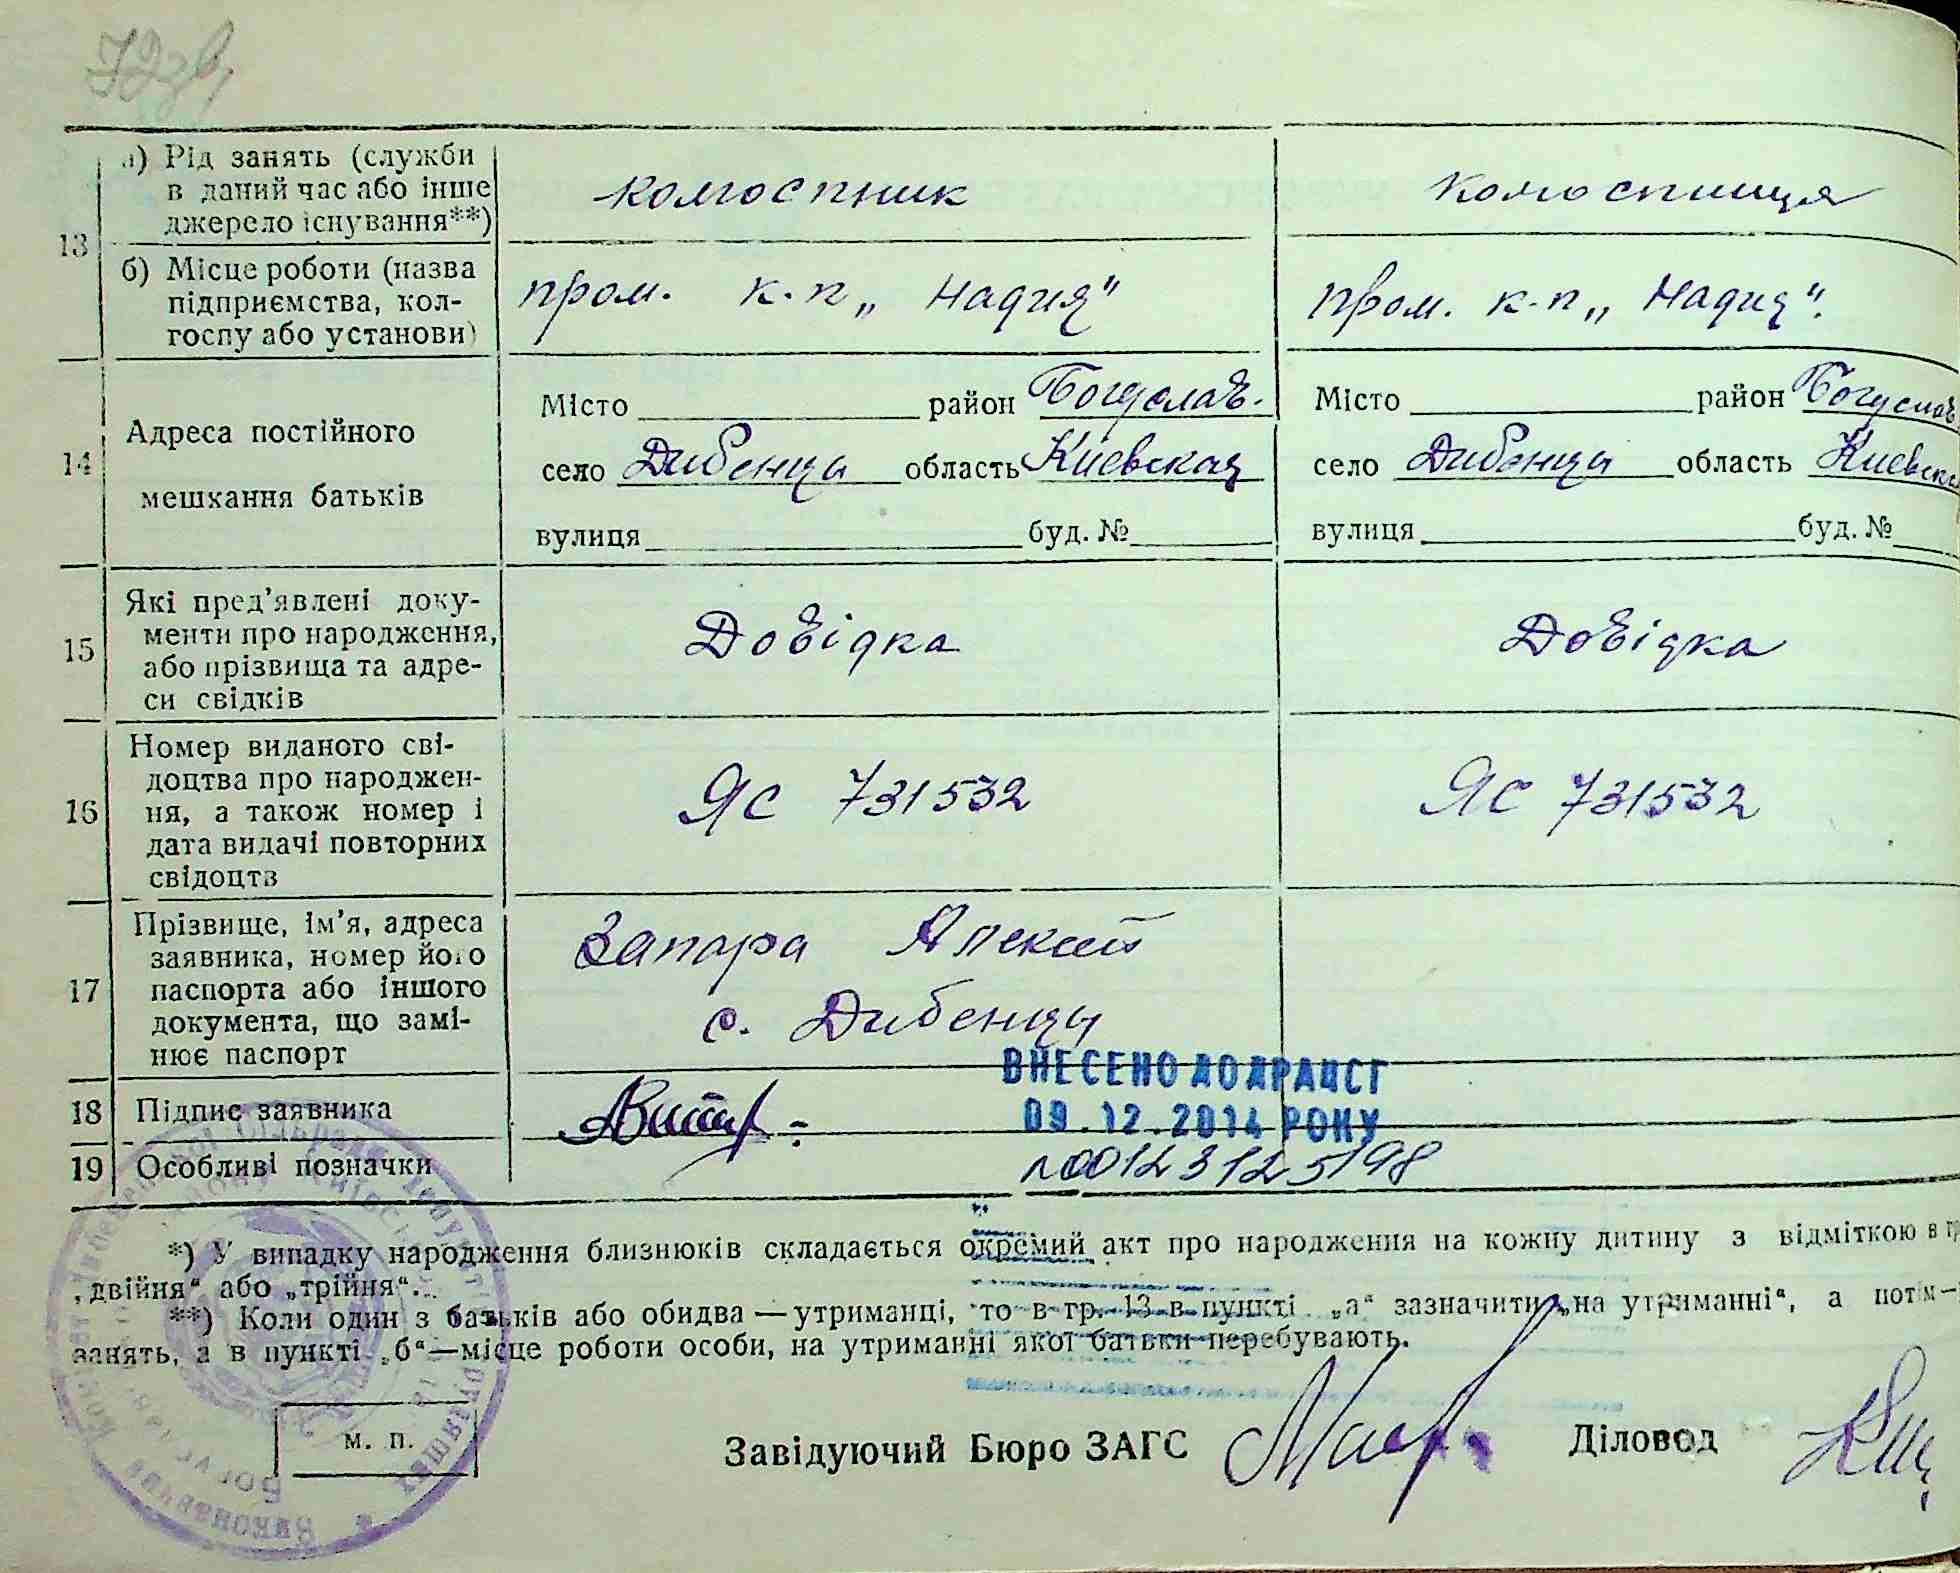 72 зв,
а) Рід занять (служби
в даний час або інше
джерело існування**)
колгоспник
колгоспниця
13
б) Місце роботи (назва
підприємства, кол-
госпу або установи)
пром. к-п „Надия"
пром. к-п „Надия".
14
Адреса постійного
мешкання батьків
Місто район Богуслав.
село Дибенцы область Киевская
вулиця буд. №
Місто район Богуслав
село Дибенцы область Киевска
вулиця буд. №
15
Які пред'явлені доку-
менти про народження,
або прізвища та адре-
си свідків
Довідка
Довідка
16
Номер виданого сві-
доцтва про народжен-
ня, а також номер і
дата видачі повторних
свідоцтв
ЯС 731532
ЯС 731532
17
Прізвище, ім'я, адреса
заявника, номер його
паспорта або іншого
документа, що замі-
нює паспорт
Запара Алексей
с. Дибенцы
18 Підпис заявника
ВНЕСЕНО ДО ДРАЦСГ
09.12.2014 РОКУ
19 Особливі позначки
n00123125198
*) У випадку народження близнюків складається окремий акт про народження на кожну дитину з відміткою в гр
„двійня" або „трійня"...
**) Коли один з батьків або обидва — утриманці, то в гр. 13 в пункті „а" зазначити „на утриманні", а потім—
занять, а в пункті „б"—місце роботи особи, на утриманні якої батьки перебувають.
м. п.
Завідуючий Бюро ЗАГС
Діловод